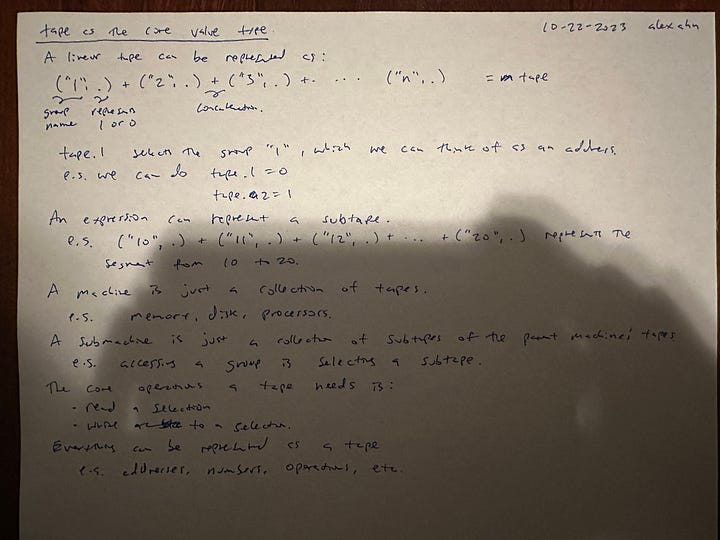 tape as the core value tree. 10-22-2023 alex ahn
A linear tape can be represented as:
("1", .) + ("2", .) + ("3", .) + . ... ("n", .) = tape
group represents concatenation.
name 1 or 0
tape.1 selects the group "1", which we can think of as an address.
e.g. we can do tape.1 = 0
tape.2 = 1
An expression can represent a subtape.
e.g. ("10", .) + ("11", .) + ("12", .) + ... + ("20", .) represents the
segment from 10 to 20.
A machine is just a collection of tapes.
e.g. memory, disk, processors.
A submachine is just a collection of subtapes of the parent machine's tapes
e.g. accessing a group is selecting a subtape.
The core operations a tape needs is:
- read a selection
- write to a selection.
Everything can be represented as a tape
e.g. addresses, numbers, operations, etc.